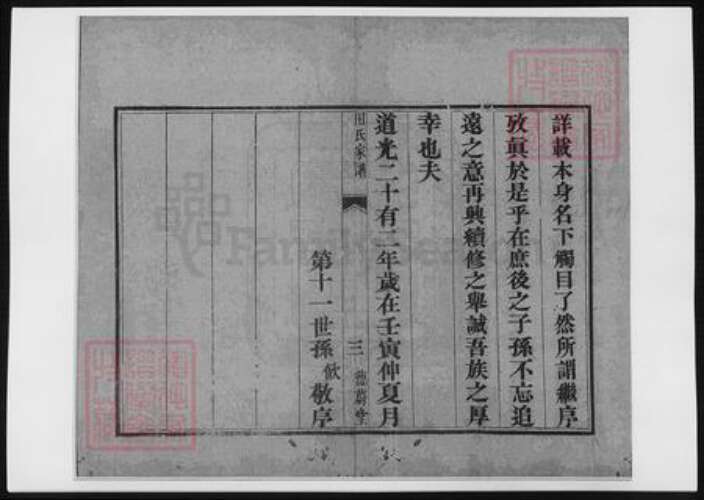 詳載本身名下觸目了然所謂繼序
攷眞於是乎在庶後之子孫不忘追
遠之意再興續修之舉誠吾族之厚
幸也夫
道光二十有二年歲在壬寅仲夏月
氏家譜
三
第十一世孫
敬序
FamilySearch